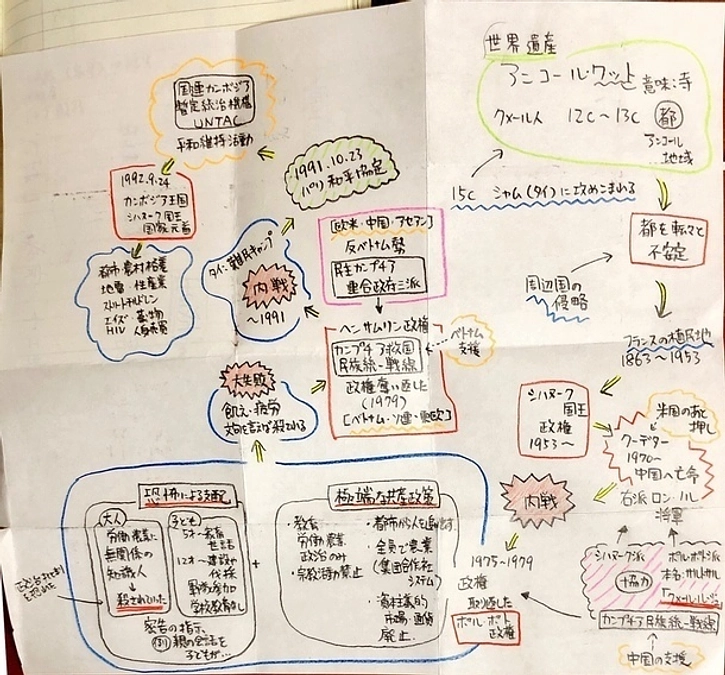 世界遺産
アンコールワット 意味:寺
クメール人 12C~13C 都
アンコール
地域
15C シャム(タイ)に攻めこまれる
都を転々と
不安定
周辺国の
侵略
フランスの植民地
1863~1953
シハヌーク
国王
政権
1953~
米国のあと
押し
クーデター
1970~
中国へ亡命
右派ロン・ノル
将軍
内戦
シハヌーク派
ポル・ポト派
本名:サルトサル
「クメール・ルージュ」
協力
カンプチア民族統一戦線
中国の支援
1975~1979
政権
取り返した
ポル・ポト
政権
極端な共産政策
・教育
労働 農業
政治のみ
・宗教活動禁止
・都市から人を追い出す
・全員で農業
(集団合作社
システム)
・資本主義的
市場・通貨
廃止
+
恐怖による支配
大人
労働 農業に
無関係の
知識人
↓
殺されていた
子ども
5才~教育
世話
12才~建設や
伐採
戦争参加
学校教育なし
密告の指示
例 親の会話を
子どもが…
大失敗
飢え・疲労
文句を言えば殺される
ヘンサムリン政権
カンプチア救国
民族統一戦線
政権奪い返した
(1979)
[ベトナム・ソ連・東欧]
ベトナム
支援
[欧米・中国・アセアン]
反ベトナム勢
民主カンプチア
連合政府三派
タイに難民キャンプ
内戦
~1991
1991.10.23
パリ和平協定
国連カンボジア
暫定統治機構
UNTAC
平和維持活動
1992.9.24
カンボジア王国
シハヌーク国王
国家元首
都市・農村格差
地雷 性産業
ストリートチルドレン
エイズ 薬物
HIV 人身売買